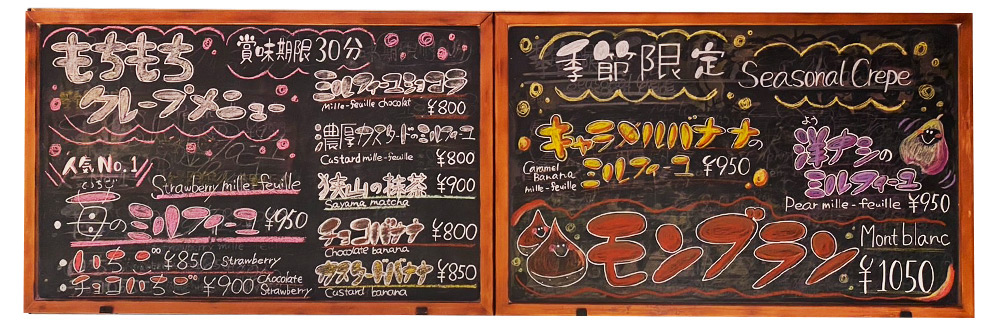 もちもち
クレープメニュー
賞味期限30分
人気No.1
Strawberry mille-feuille
苺のミルフィーユ ¥950
いちご ¥850 Strawberry
チョコいちご ¥900 Chocolate Strawberry
ミルフィーユショコラ
Mille-feuille chocolat ¥800
濃厚カスタードのミルフィーユ
Custard mille-feuille ¥800
狭山の抹茶 ¥900
Sayama matcha
チョコバナナ ¥800
Chocolate banana
カスタードバナナ ¥850
Custard banana
季節限定 Seasonal Crepe
キャラメルバナナの
Caramel Banana mille-feuille
ミルフィーユ ¥950
よう
洋ナシの
ミルフィーユ
Pear mille-feuille ¥950
モンブラン
Montblanc
¥1050